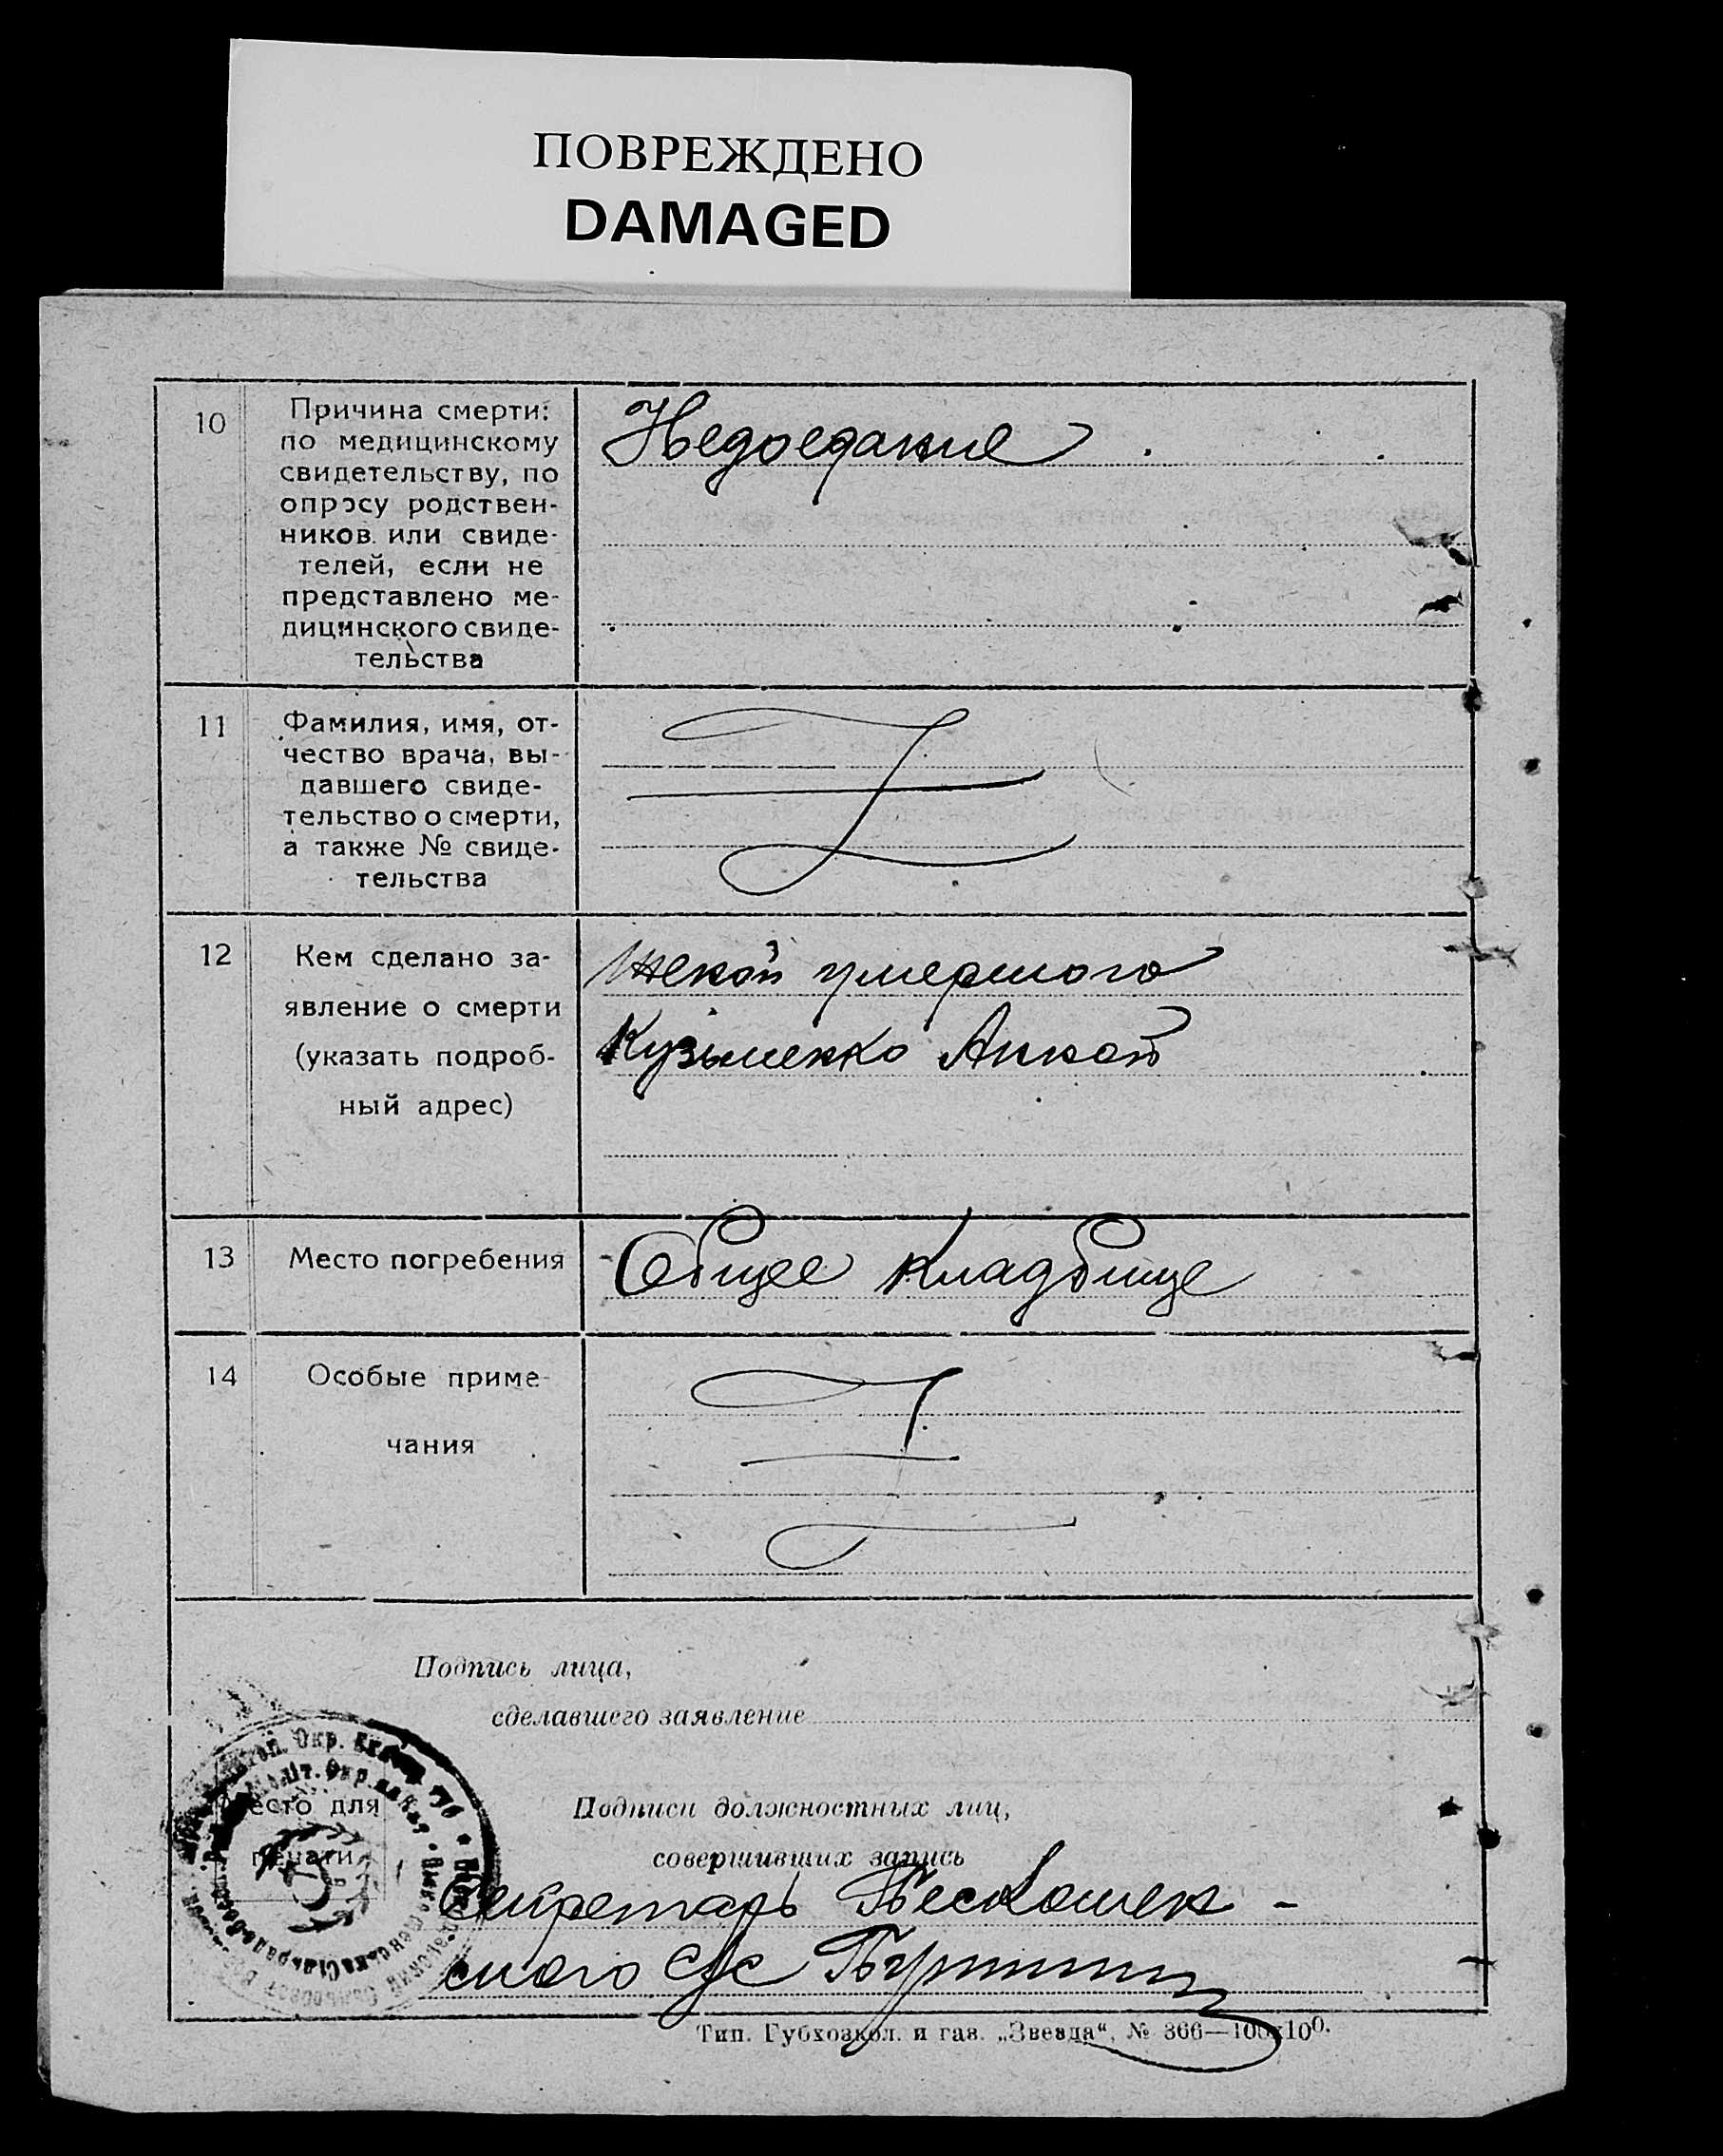 ПОВРЕЖДЕНО
DAMAGED
10
Причина смерти:
по медицинскому
свидетельству, по
опросу родствен-
ников или свиде-
телей, если не
представлено ме-
дицинского свиде-
тельства
Недоедание
11
Фамилия, имя, от-
чество врача, вы-
давшего свиде-
тельство о смерти,
а также № свиде-
тельства
12
Кем сделано за-
явление о смерти
(указать подроб-
ный адрес)
Женой умершого
Кузьменко Анной
13
Место погребения
Общее кладбище
14
Особые приме-
чания
Подпись лица,
сделавшего заявление
Место для
печати
Подписи должностных лиц,
совершивших запись
Секретарь
ского с/с
Тип. Губхозкол. и газ. „Звезда“, № 366—100х100.